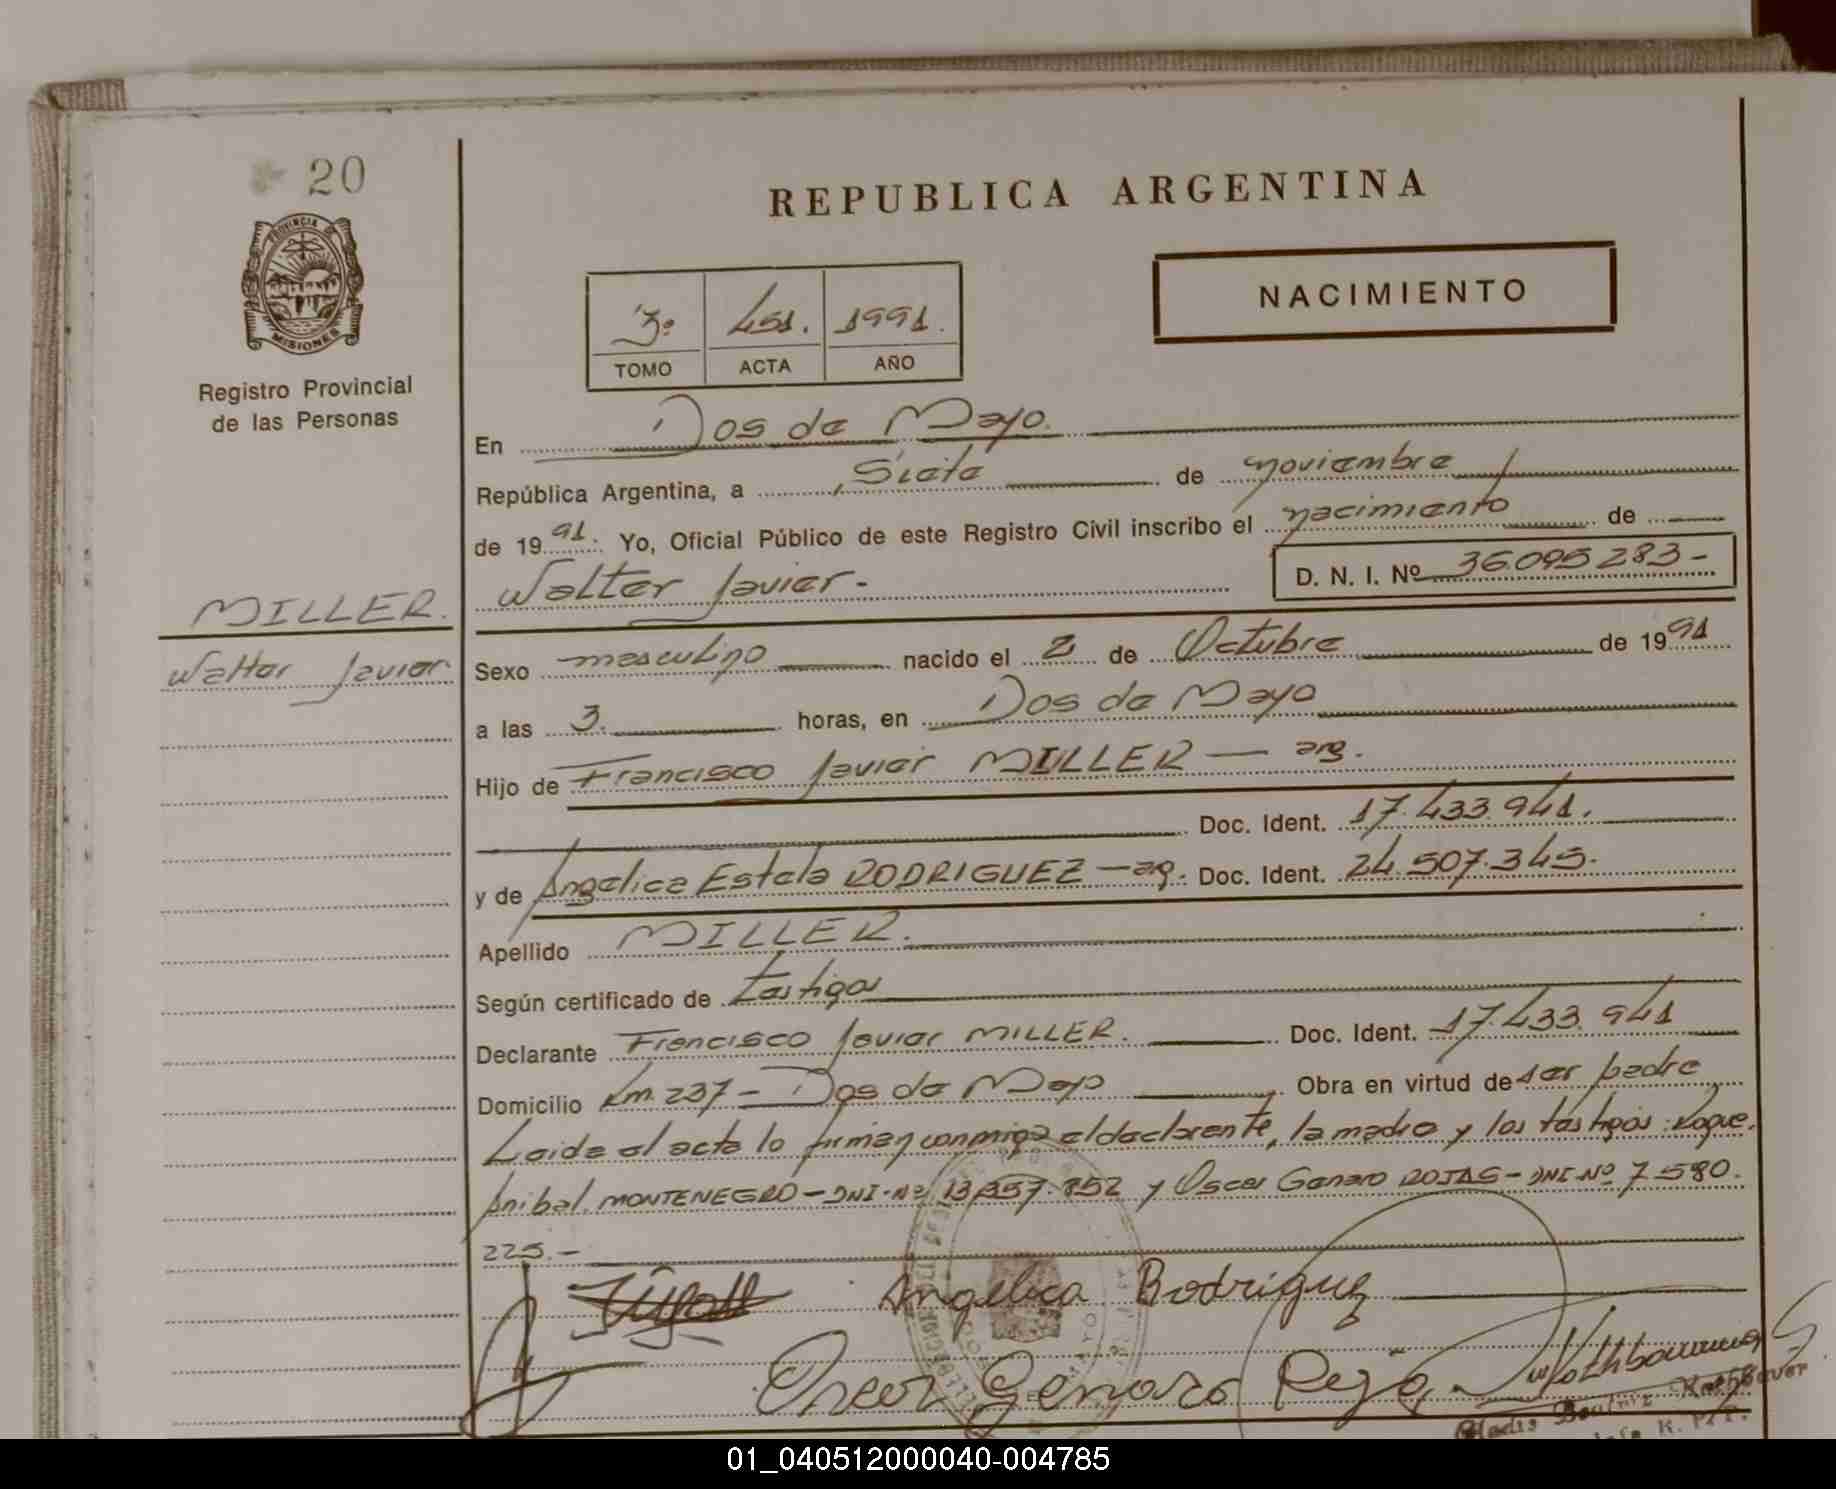 20
PROVINCIA DE
MISIONES
Registro Provincial
de las Personas
MILLER.
Walter Javier.
REPUBLICA ARGENTINA
NACIMIENTO
3º 451. 1991.
TOMO ACTA AÑO
En Dos de Mayo.
República Argentina, a Siete de noviembre
de 1991. Yo, Oficial Público de este Registro Civil inscribo el nacimiento de
Walter Javier.- D. N. I. Nº 36.095283-
Sexo masculino nacido el 2 de Octubre de 1991
a las 3. horas, en Dos de Mayo
Hijo de Francisco Javier MILLER — arg.
Doc. Ident. 17.433.941.
y de Angelica Estela RODRIGUEZ — arg. Doc. Ident. 24.507.345.
Apellido MILLER.
Según certificado de testigos
Declarante Francisco Javier MILLER. Doc. Ident. 17.433.941
Domicilio Km. 237 - Dos de Mayo Obra en virtud de ser padre
Leida el acta lo firman conmigo el declarante, la madre y los testigos: Roque.
Anibal. MONTENEGRO - DNI-Nº 13.857.852 y Oscar Genaro ROJAS - DNI-Nº 7.580.
225.-
Angelica Rodriguez
Oscar Genaro
Gladis Beatriz Rothbauer
01_040512000040-004785